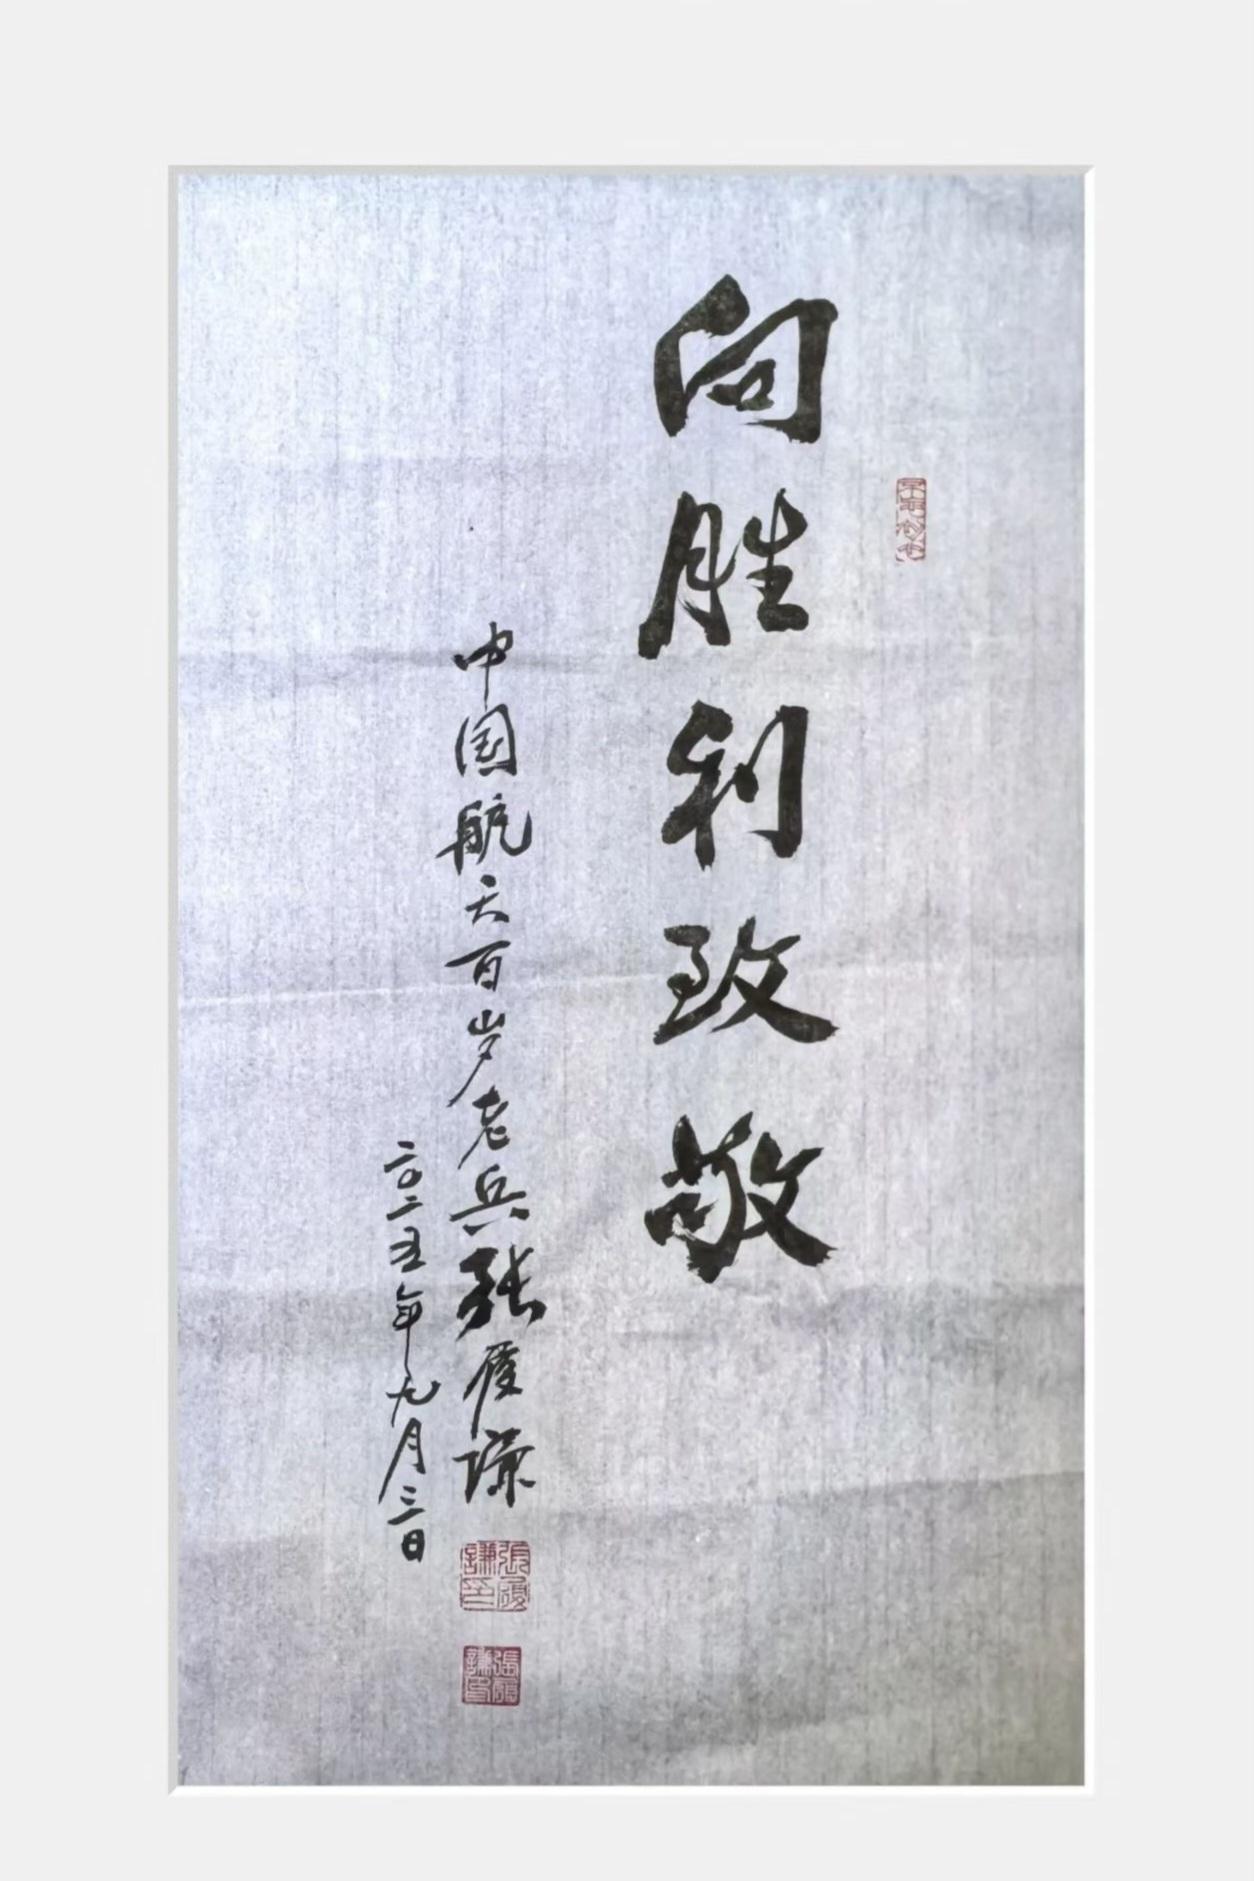 向胜利致敬
中国航天百岁老兵张履谦
二〇二五年九月三日
張履謙印
張履謙印